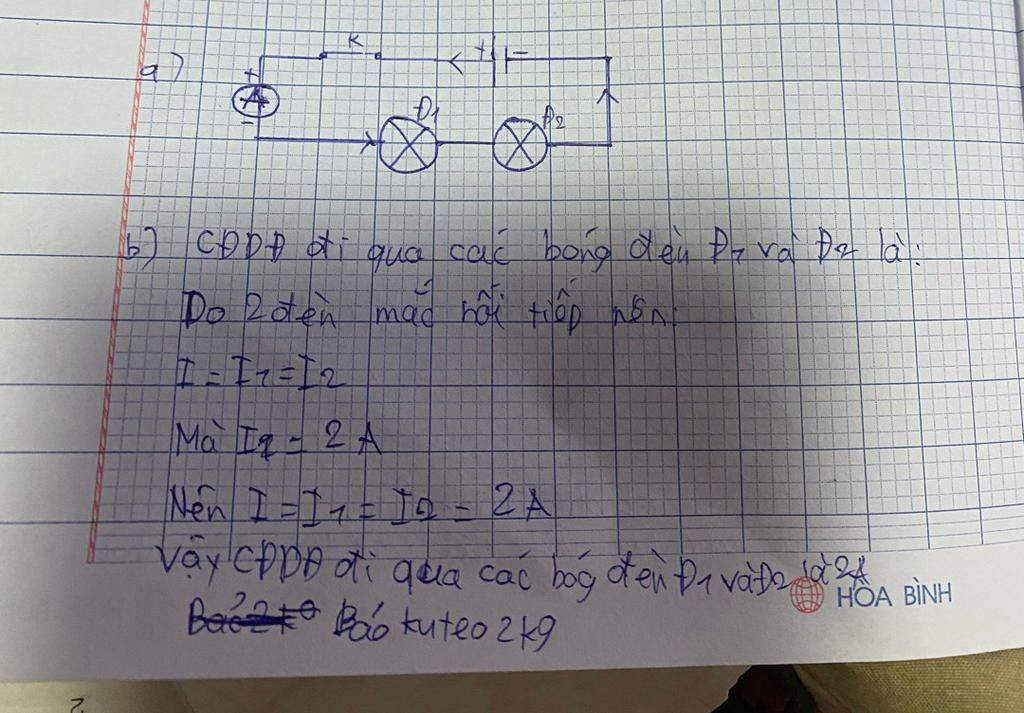 a)
K
+ -
+
A
-
Đ1
Đ2
b) CĐDĐ đi qua các bóng đèn Đ1 và Đ2 là:
Do 2 đèn mắc nối tiếp nên:
I = I1 = I2
Mà I2 = 2 A
Nên I = I1 = I2 = 2A
Vậy CĐDĐ đi qua các bóg đèn Đ1 và Đ2 là 2A
HÒA BÌNH
Báo kuteo 2k9
2